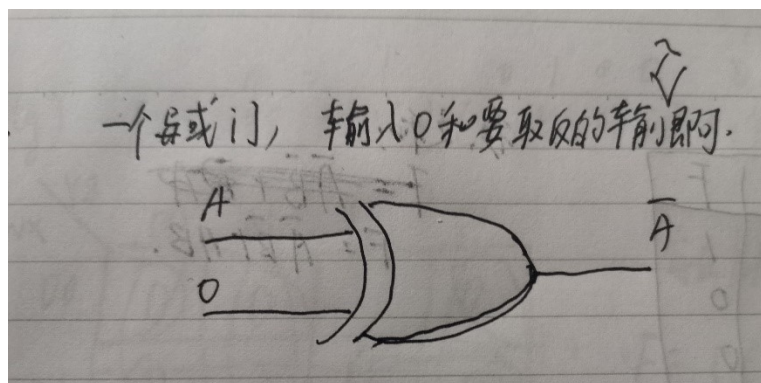 一个异或门, 输入0和要取反的输入即可.
A
0
A̅